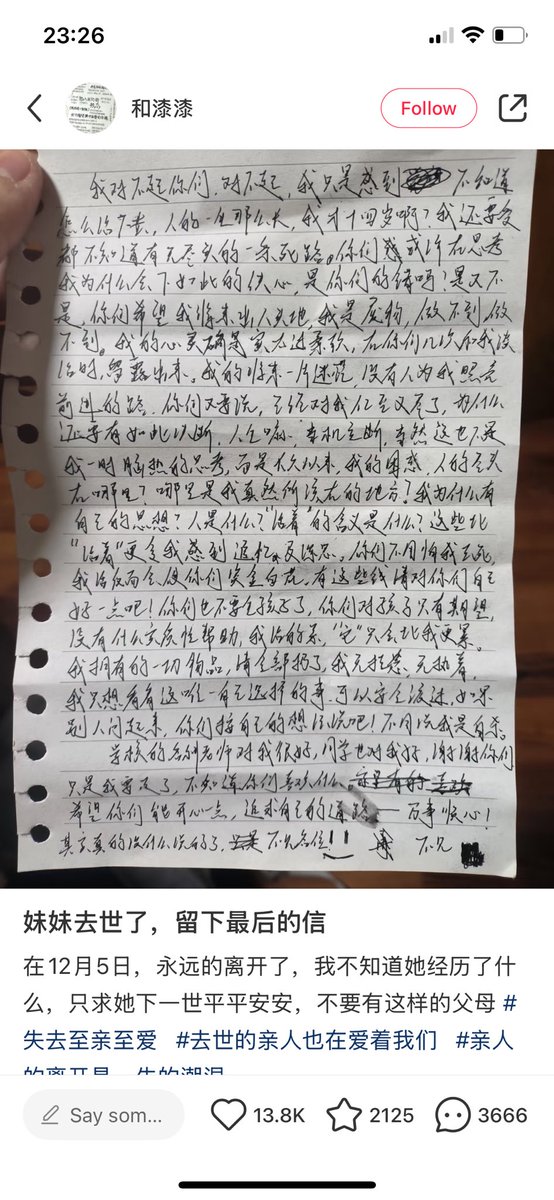 23:26
和漆漆
Follow
我对不起你们，对不起，我只是感到 不知道
怎么活下去，人的一生那么长，我才十四岁啊？我还要
都不知道有无尽头的一条死路。你们或许在思考
我为什么会下如此的决心，是你们的错吗？是又不
是，你们希望我将来出人头地，我是废物，做不到做
不到。我的心 确是 太过柔软，在你们几次和我谈
话时，展露出来。我的将来一片迷茫，没有人为我照亮
前进的路，你们又要说，已经对我仁至义尽了，为什么
还要有如此 断，人生嘛， 当然这也不是
我一时脑热的思考，而是长久以来，我的困惑，人的尽头
在哪里？哪里是我真然所该在的地方？我为什么有
自己的思想？人是什么？"活着"的含义是什么？这些比
"活着"更令我感到追忆及深思，你们不用怕我去死，
我活反而会使你们 白花，有这些钱请对你们自己
好一点吧！你们也不要生孩子了，你们对孩子只有期望，
没有什么实质性帮助，我活的累，"它"只会比我更累。
我拥有的一切物品，请全部扔了，我无挂念，无执着，
我只想看看这唯一自己选择的事，可以安全渡过，如果
别人问起来，你们按自己的想法说吧！不用说我是自杀。
学校的各科老师对我很好，同学也对我好，谢谢你们
只是我要走了，不知道你们喜欢什么。
希望你们能开心一点，追求自己的道路——万事顺心！
其实真的没什么说的了， 不见各位！！ 不见
妹妹去世了，留下最后的信
在12月5日，永远的离开了，我不知道她经历了什
么，只求她下一世平平安安，不要有这样的父母 #
失去至亲至爱 #去世的亲人也在爱着我们 #亲人
的离开是一生的潮湿
Say som...
13.8K
2125
3666